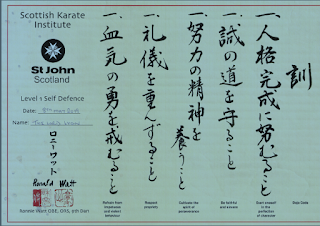 Scottish Karate
Institute
St John
Scotland
Level 1 Self Defence
Date:
Name:
ロニーワット
Ronald Watt
Ronnie Watt OBE, ORS, 9th Dan
訓
一、人格完成に努むること
一、誠の道を守ること
一、努力の精神を養うこと
一、礼儀を重んずること
一、血気の勇を戒むること
Refrain from
impetuous
(and violent)
behaviour
Respect
propriety
Cultivate the
spirit of
perseverance
Be faithful
and sincere
Exert oneself
in the
perfection
of character
Dojo Code